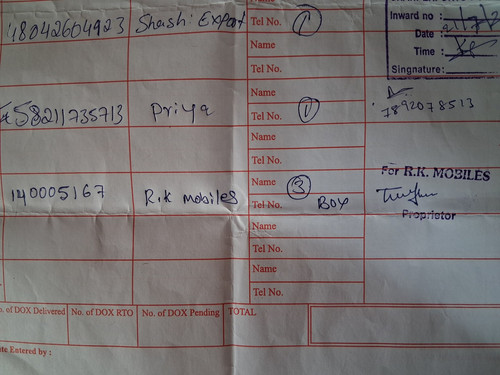 Name
48042604923 Shashi Export Tel No. 1
Inward no :
Date :
Name
Time :
Tel No.
Singnature:
Name
58211735713 Priya Tel No. 1 7892078513
Name
Tel No.
For R.K. MOBILES
140005167 R.K mobiles Name 3
Tel No. Box
Proprietor
Name
Tel No.
Name
Tel No.
o. of DOX Delivered No. of DOX RTO No. of DOX Pending TOTAL
ate Entered by :